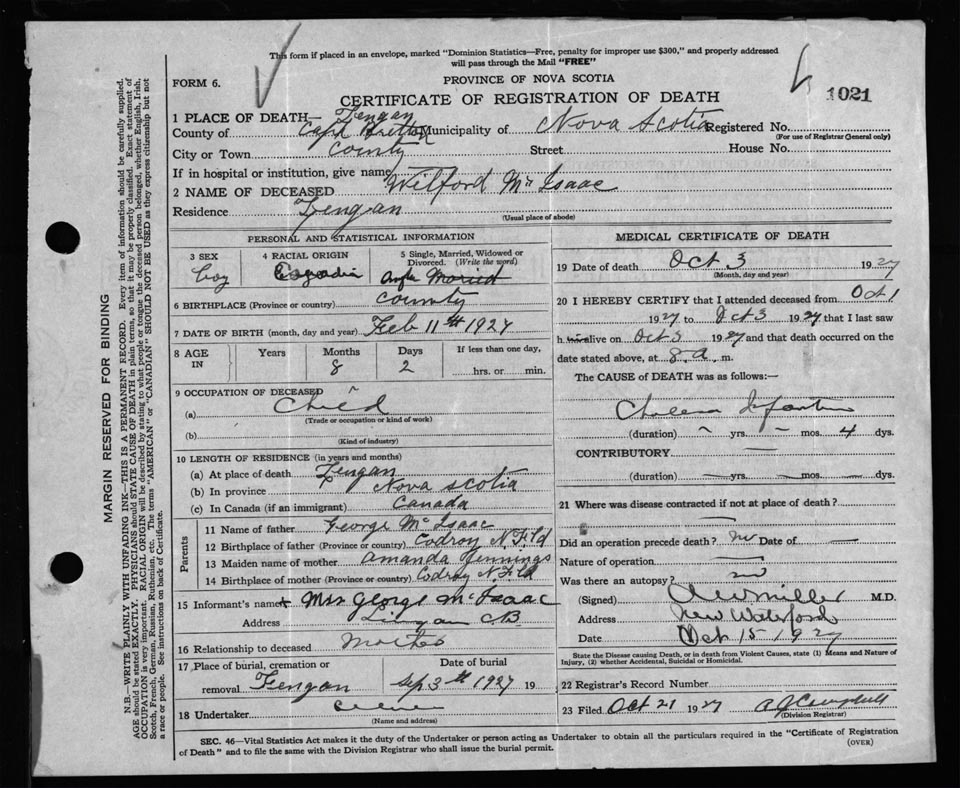 This form if placed in an envelope, marked "Dominion Statistics—Free, penalty for improper use $300," and properly addressed
will pass through the Mail "FREE"
FORM 6.
PROVINCE OF NOVA SCOTIA
1021
CERTIFICATE OF REGISTRATION OF DEATH
1 PLACE OF DEATH— Lengan
County of Cape Bretton Municipality of Nova Scotia Registered No.
(For use of Registrar General only)
City or Town County Street House No.
If in hospital or institution, give name
2 NAME OF DECEASED Wilford Mc Isaac
Residence Lengan
(Usual place of abode)
PERSONAL AND STATISTICAL INFORMATION
3 SEX boy
4 RACIAL ORIGIN
5 Single, Married, Widowed or Divorced. (Write the word)
6 BIRTHPLACE (Province or country) County
7 DATE OF BIRTH (month, day and year) Feb 11th 1927
8 AGE IN Years Months 8 Days 2 If less than one day, hrs. or min.
9 OCCUPATION OF DECEASED
(a) Child
(Trade or occupation or kind of work)
(b)
(Kind of industry)
10 LENGTH OF RESIDENCE (in years and months)
(a) At place of death Lengan
(b) In province Nova Scotia
(c) In Canada (if an immigrant) Canada
Parents
11 Name of father George Mc Isaac
12 Birthplace of father (Province or country) Codroy N Fld
13 Maiden name of mother Amanda Jennings
14 Birthplace of mother (Province or country) Codroy N. Fld
15 Informant's name Mrs George Mc Isaac
Address Lingan CB
16 Relationship to deceased
17 Place of burial, cremation or removal Lengan
Date of burial Sep 3th 1927 19
18 Undertaker
(Name and address)
MEDICAL CERTIFICATE OF DEATH
19 Date of death Oct 3 1927
(Month, day and year)
20 I HEREBY CERTIFY that I attended deceased from Oct 1
1927 to Oct 3 1927 that I last saw
h alive on Oct 3 1927 and that death occurred on the
date stated above, at 8 a. m.
The CAUSE of DEATH was as follows:—
Cholera Infantum
(duration) – yrs. – mos. 4 dys.
CONTRIBUTORY —
(duration) — yrs. — mos. — dys.
21 Where was disease contracted if not at place of death?
—
Did an operation precede death? no Date of —
Nature of operation —
Was there an autopsy? no
(Signed) Miller M.D.
Address New Waterford
Date Oct 15 1927
State the Disease causing Death, or in death from Violent Causes, state (1) Means and Nature of
Injury, (2) whether Accidental, Suicidal or Homicidal.
22 Registrar's Record Number
23 Filed Oct 21 1927 A J Campbell
(Division Registrar)
SEC. 46—Vital Statistics Act makes it the duty of the Undertaker or person acting as Undertaker to obtain all the particulars required in the "Certificate of Registration
of Death" and to file the same with the Division Registrar who shall issue the burial permit.
(OVER)
MARGIN RESERVED FOR BINDING
N.B.—WRITE PLAINLY WITH UNFADING INK—THIS IS A PERMANENT RECORD. Every item of information should be carefully supplied.
AGE should be stated EXACTLY. PHYSICIANS should STATE CAUSE OF DEATH in plain terms, so that it may be properly classified. Exact statement of
OCCUPATION is very important. RACIAL ORIGIN will be described by stating to what people or tongue the deceased person belonged, whether English, Irish,
Scotch, French, German, Russian, Ruthenian, etc. The terms "AMERICAN" or "CANADIAN" SHOULD NOT BE USED as they express citizenship but not
a race or people. See instructions on back of Certificate.